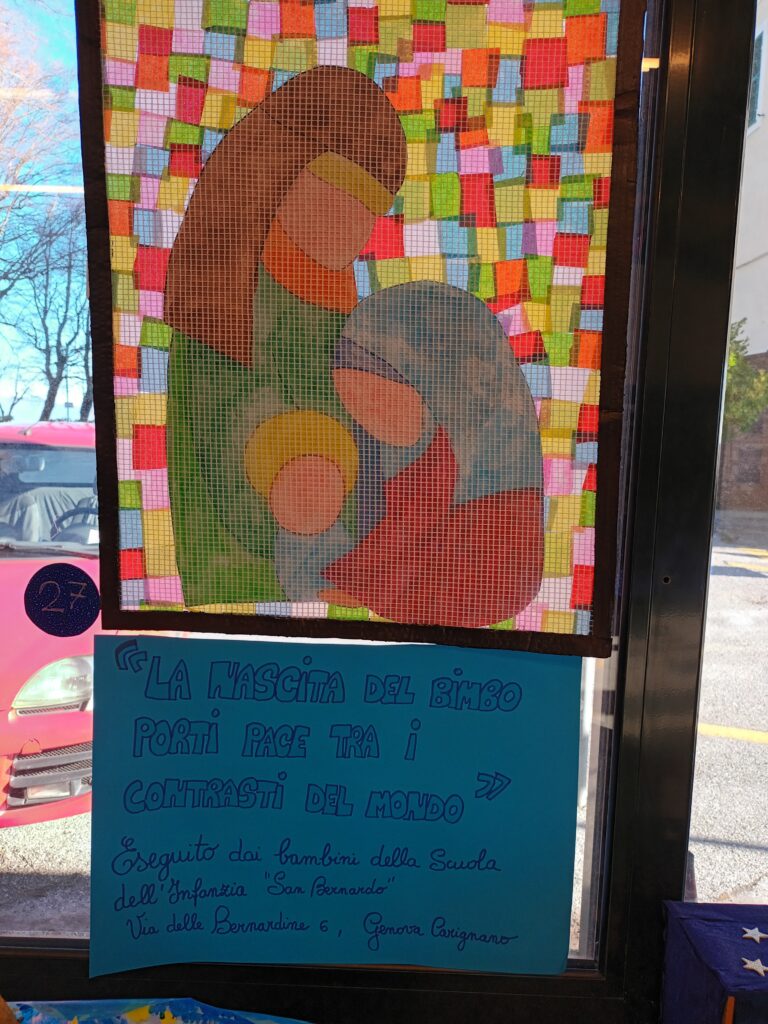 27
“LA NASCITA DEL BIMBO
PORTI PACE TRA I
CONTRASTI DEL MONDO”
Eseguito dai bambini della Scuola
dell'Infanzia "San Bernardo"
Via delle Bernardine 6, Genova Carignano